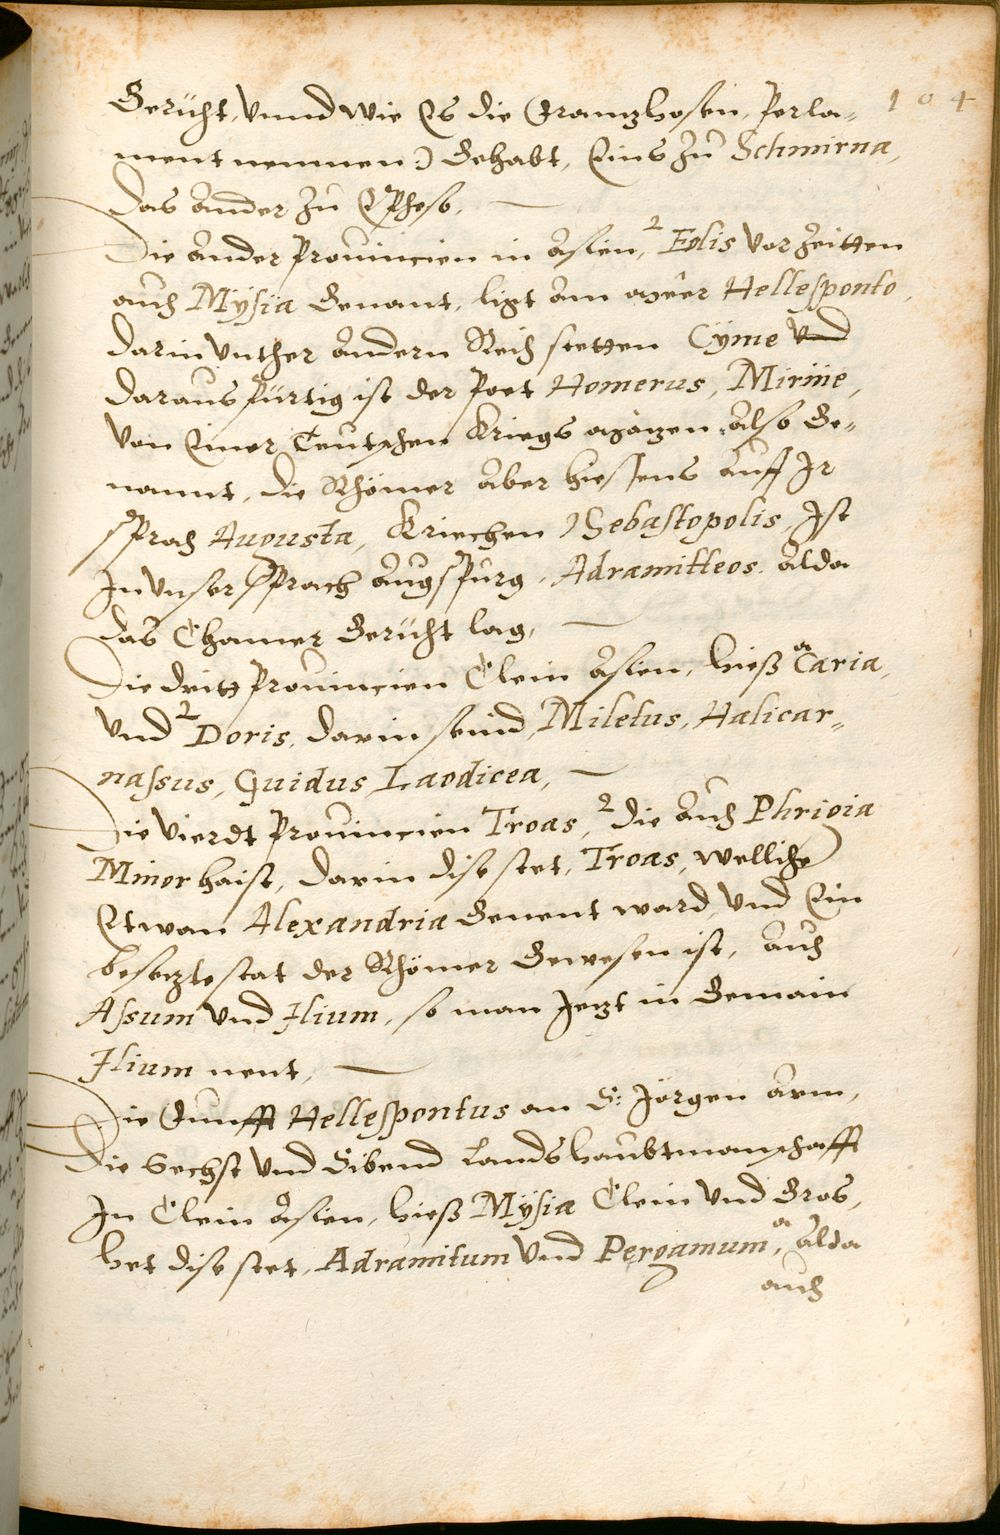 104
Gericht, Vnnd wie Es die Frantzhosen, Perla-
ment nennen:) Gehabt, Eins zu Schmirna,
das ander zu Epheso,
Die ander Prouincien in Asien, 2 Eolis Vor zeitten
auch Mÿsia Genant, ligt am meer Hellesponto,
darin Vnther andern Reich stetten Cÿme Vnd
daraus pürtig ist der Poet Homerus, Mirine,
Von Einer Teutschen Kriegs Also Ge-
nannt, die Rhömer Aber hiessens auff Ir
sprach Augusta, Kriechen Sebastopolis, Ist
In Vnser Sprach Augspurg, Adramitteos, Alda
das Chamer Gericht lag,
Die dritt Prouincien Clein Asien, hieß a Caria,
Vnd 2 Doris, darin seind, Miletus, Halicar-
nassus, Guidus, Laodicea,
Die Vierdt Prouincien Troas, 2 die auch Phrigia
Minor haist, darin dise stet, Troas, welliche
Etwan Alexandria Genent ward, Vnd Ein
besetzte stat der Rhömer Gewesen ist, auch
Assum Vnd Ilium, so man Jetzt in Gemain
Ilium nent,
Die Funfft Hellespontus an S: Jörgen Arm,
Die Sechst Vnd Sibend Landshaubtmanschafft
In Clein Asien, hieß Mÿsia Clein Vnd Gros,
het dise stet, Adramitum Vnd Pergamum, a alda
auch